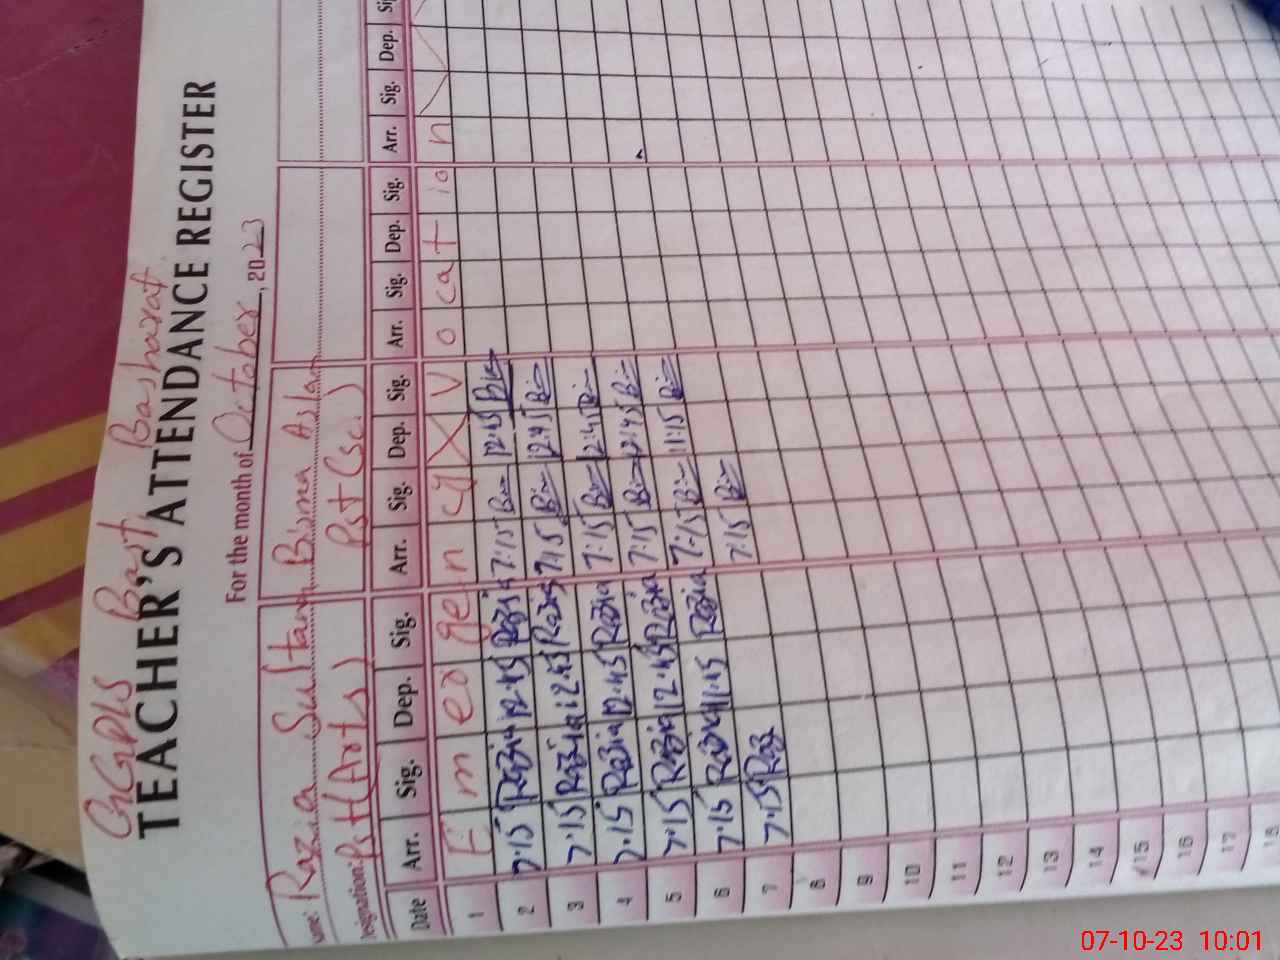 GGPS Basti Basharat
TEACHER'S ATTENDANCE REGISTER
For the month of October, 2023
Name: Razia Sultana Bisma Aslam
Designation: Pst (Arts) Pst (Sc.)
Date Arr. Sig. Dep. Sig. Arr. Sig. Dep. Sig. Arr. Sig. Dep. Sig. Arr. Sig. Dep.
1 E m er ge n cy V o ca t io n
2 7.15 Razia 12.45 Razia 7:15 12:45
3 7.15 Razia 12.45 Razia 7:15 12:45
4 7.15 Razia 12.45 Razia 7:15 12:45
5 7.15 Razia 12.45 Razia 7:15 12:45
6 7.15 Razia 11.45 Razia 7:15 11:15
7 7.15 7:15
8
9
10
11
12
13
14
15
16
17
18
07-10-23 10:01